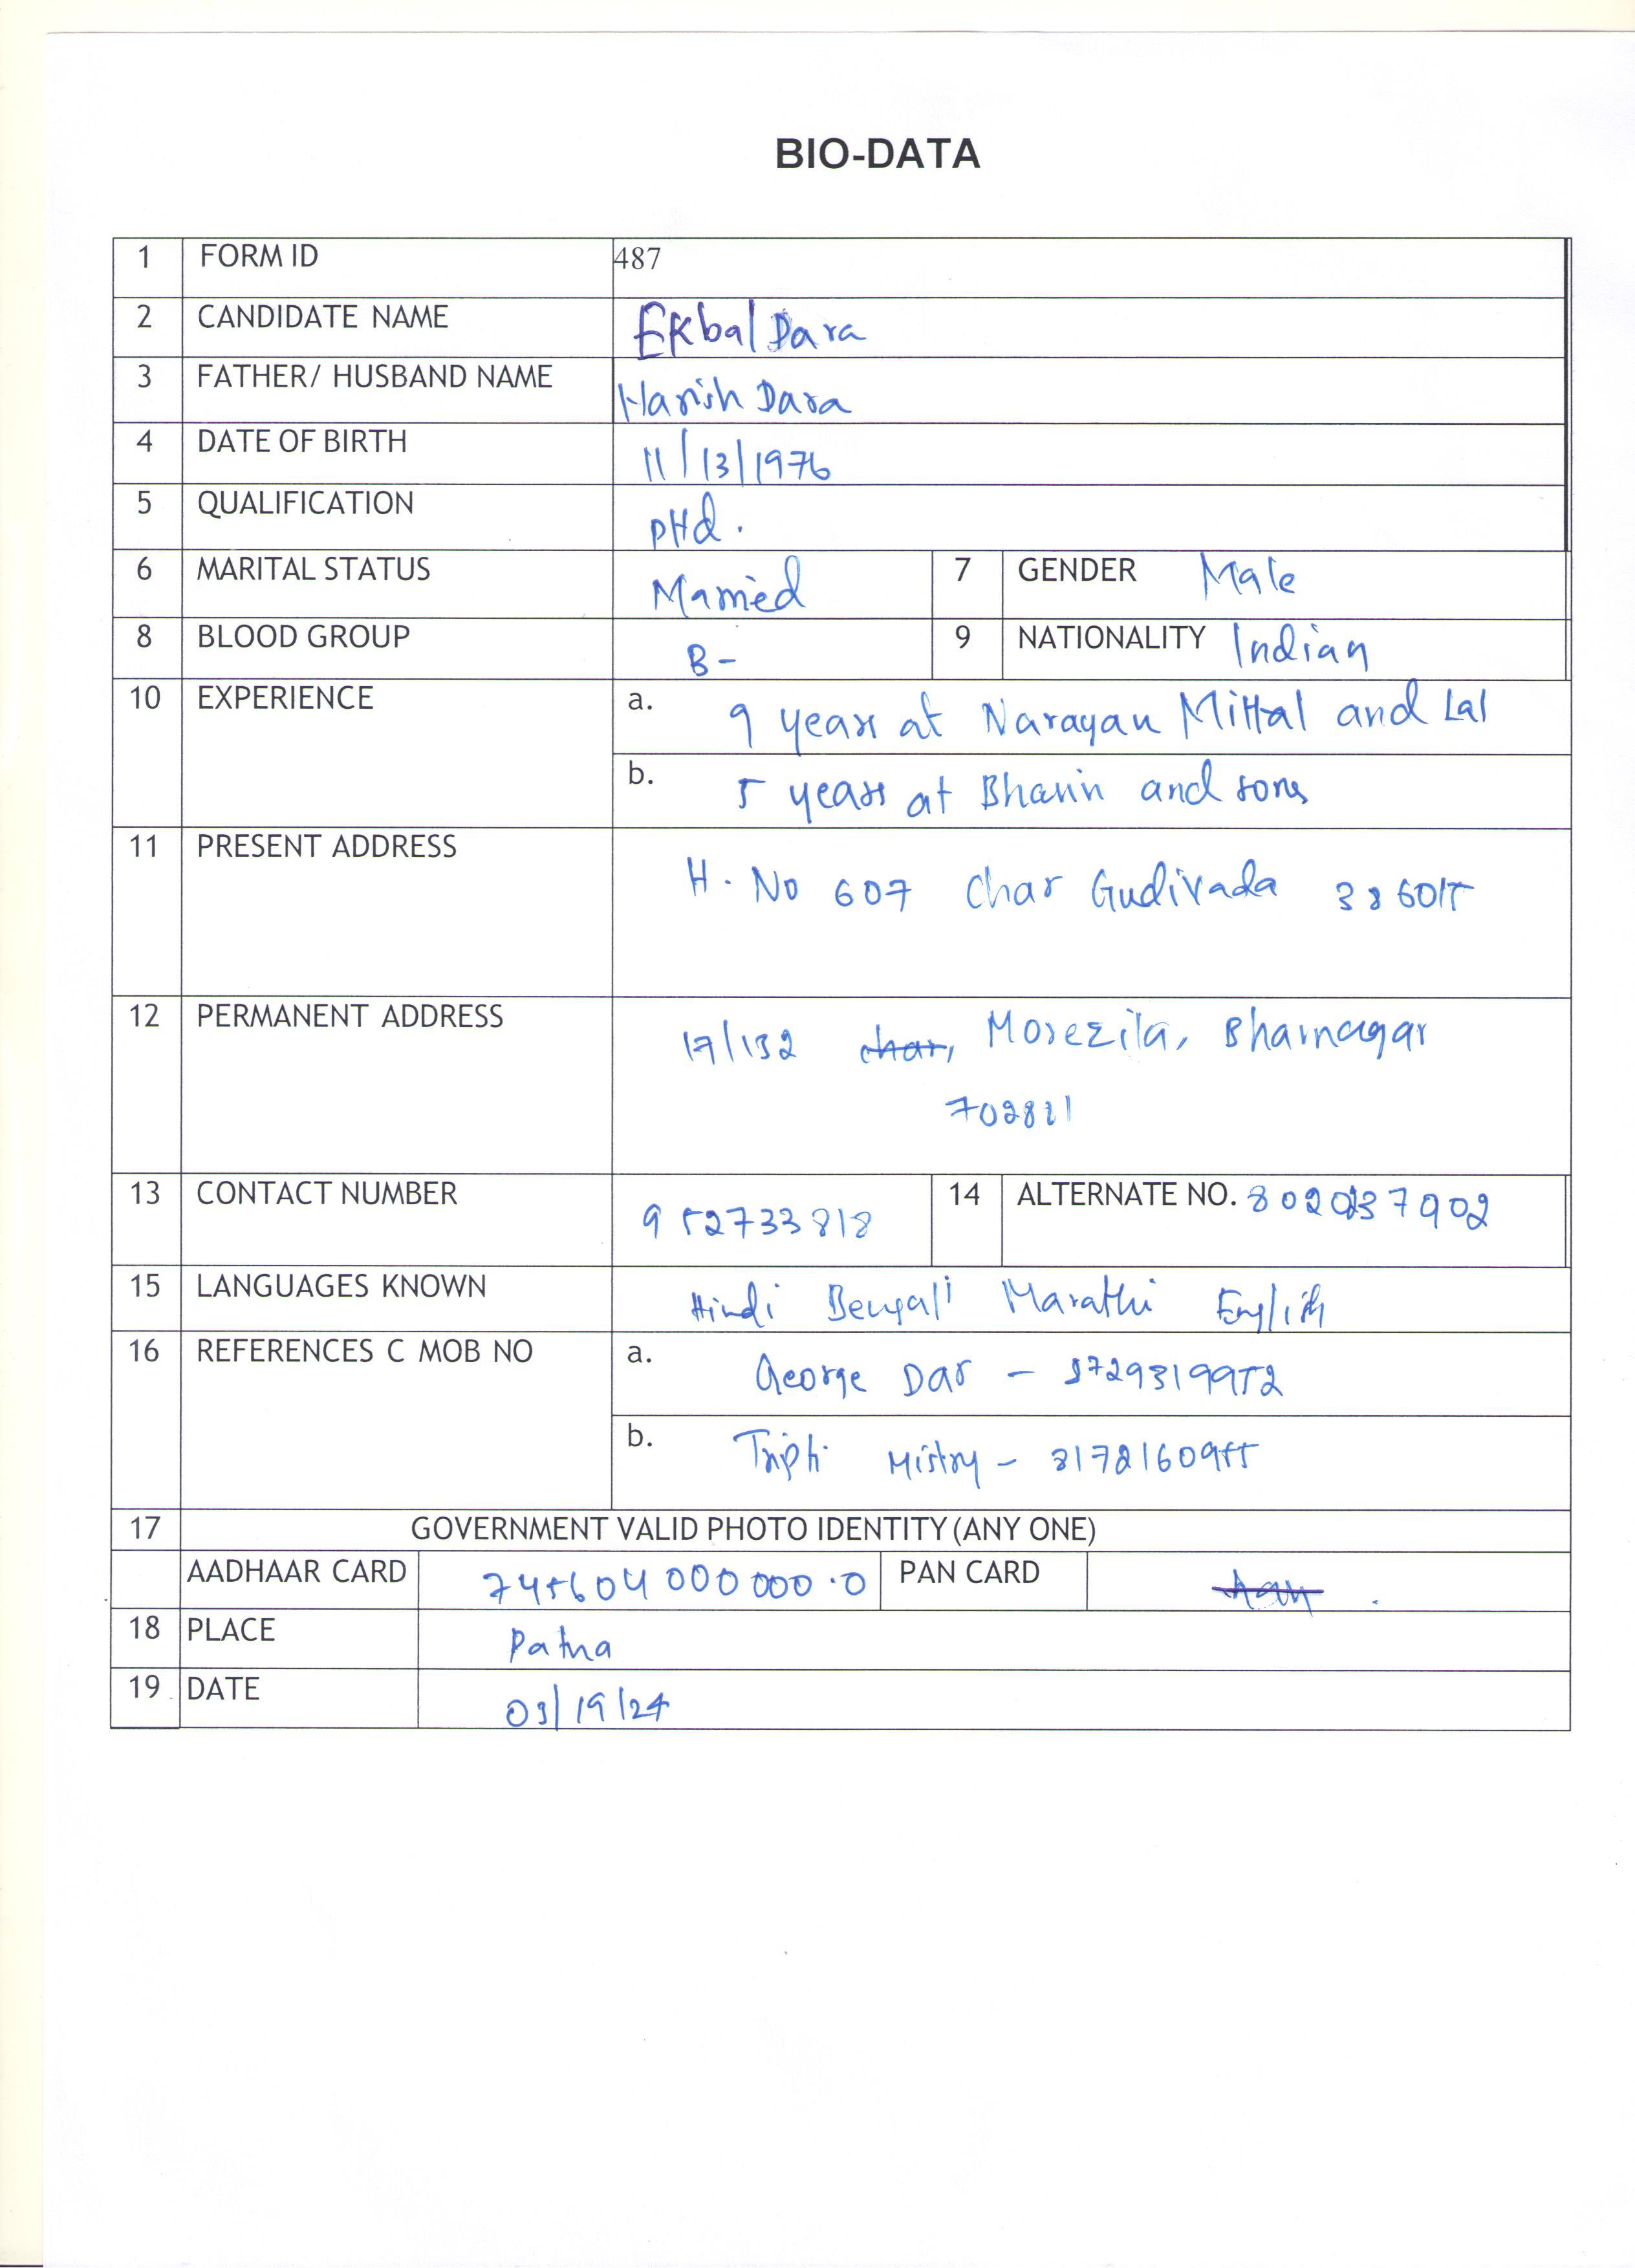 BIO-DATA
1 FORM ID 487
2 CANDIDATE NAME Ekbal Dara
3 FATHER/ HUSBAND NAME Harish Dara
4 DATE OF BIRTH 11/13/1976
5 QUALIFICATION pHd.
6 MARITAL STATUS Married 7 GENDER Male
8 BLOOD GROUP B- 9 NATIONALITY Indian
10 EXPERIENCE a. 9 years at Narayan Mittal and Lal
b. 5 years at and sons
11 PRESENT ADDRESS H. No 607 Char Gudivada 386015
12 PERMANENT ADDRESS 17/132 Morezila, Bhavnagar
702821
13 CONTACT NUMBER 952733818 14 ALTERNATE NO.
15 LANGUAGES KNOWN Hindi Bengali Marathi English
16 REFERENCES C MOB NO a. George Dar -
b. Tripti Mistry - 8172160955
17 GOVERNMENT VALID PHOTO IDENTITY (ANY ONE)
AADHAAR CARD 745604000000.0 PAN CARD
18 PLACE Patna
19 DATE 03/19/24